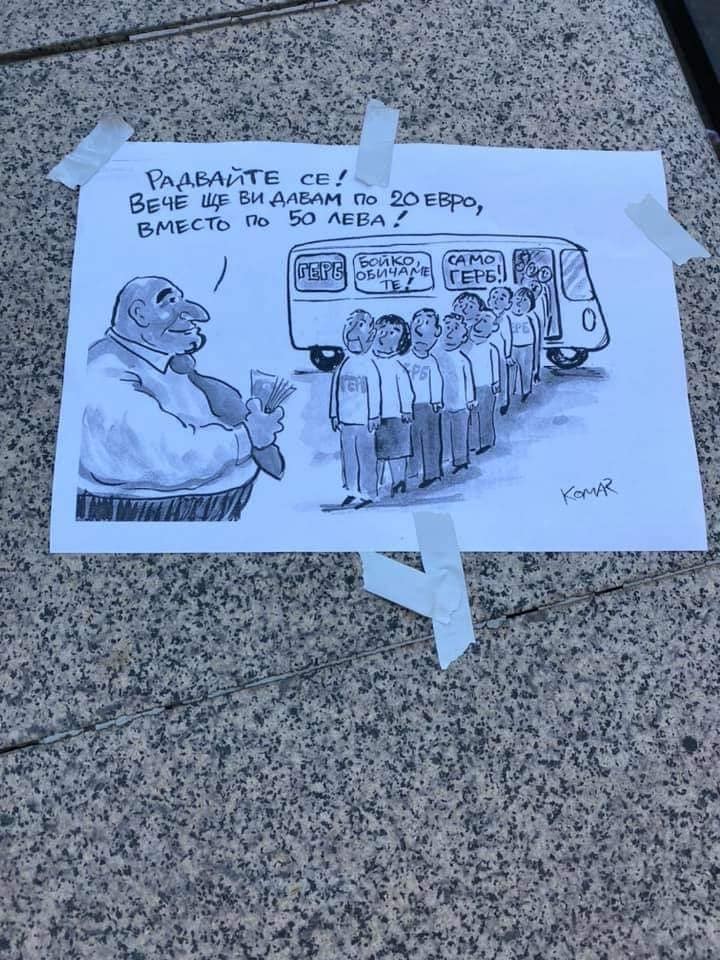 РАДВАЙТЕ СЕ!
ВЕЧЕ ЩЕ ВИ ДАВАМ ПО 20 ЕВРО,
ВМЕСТО ПО 50 ЛЕВА!
ГЕРБ
БОЙКО,
ОБИЧАМЕ
ТЕ!
САМО
ГЕРБ!
ГЕРБ
ЕРБ
ЕРБ
КОМАР